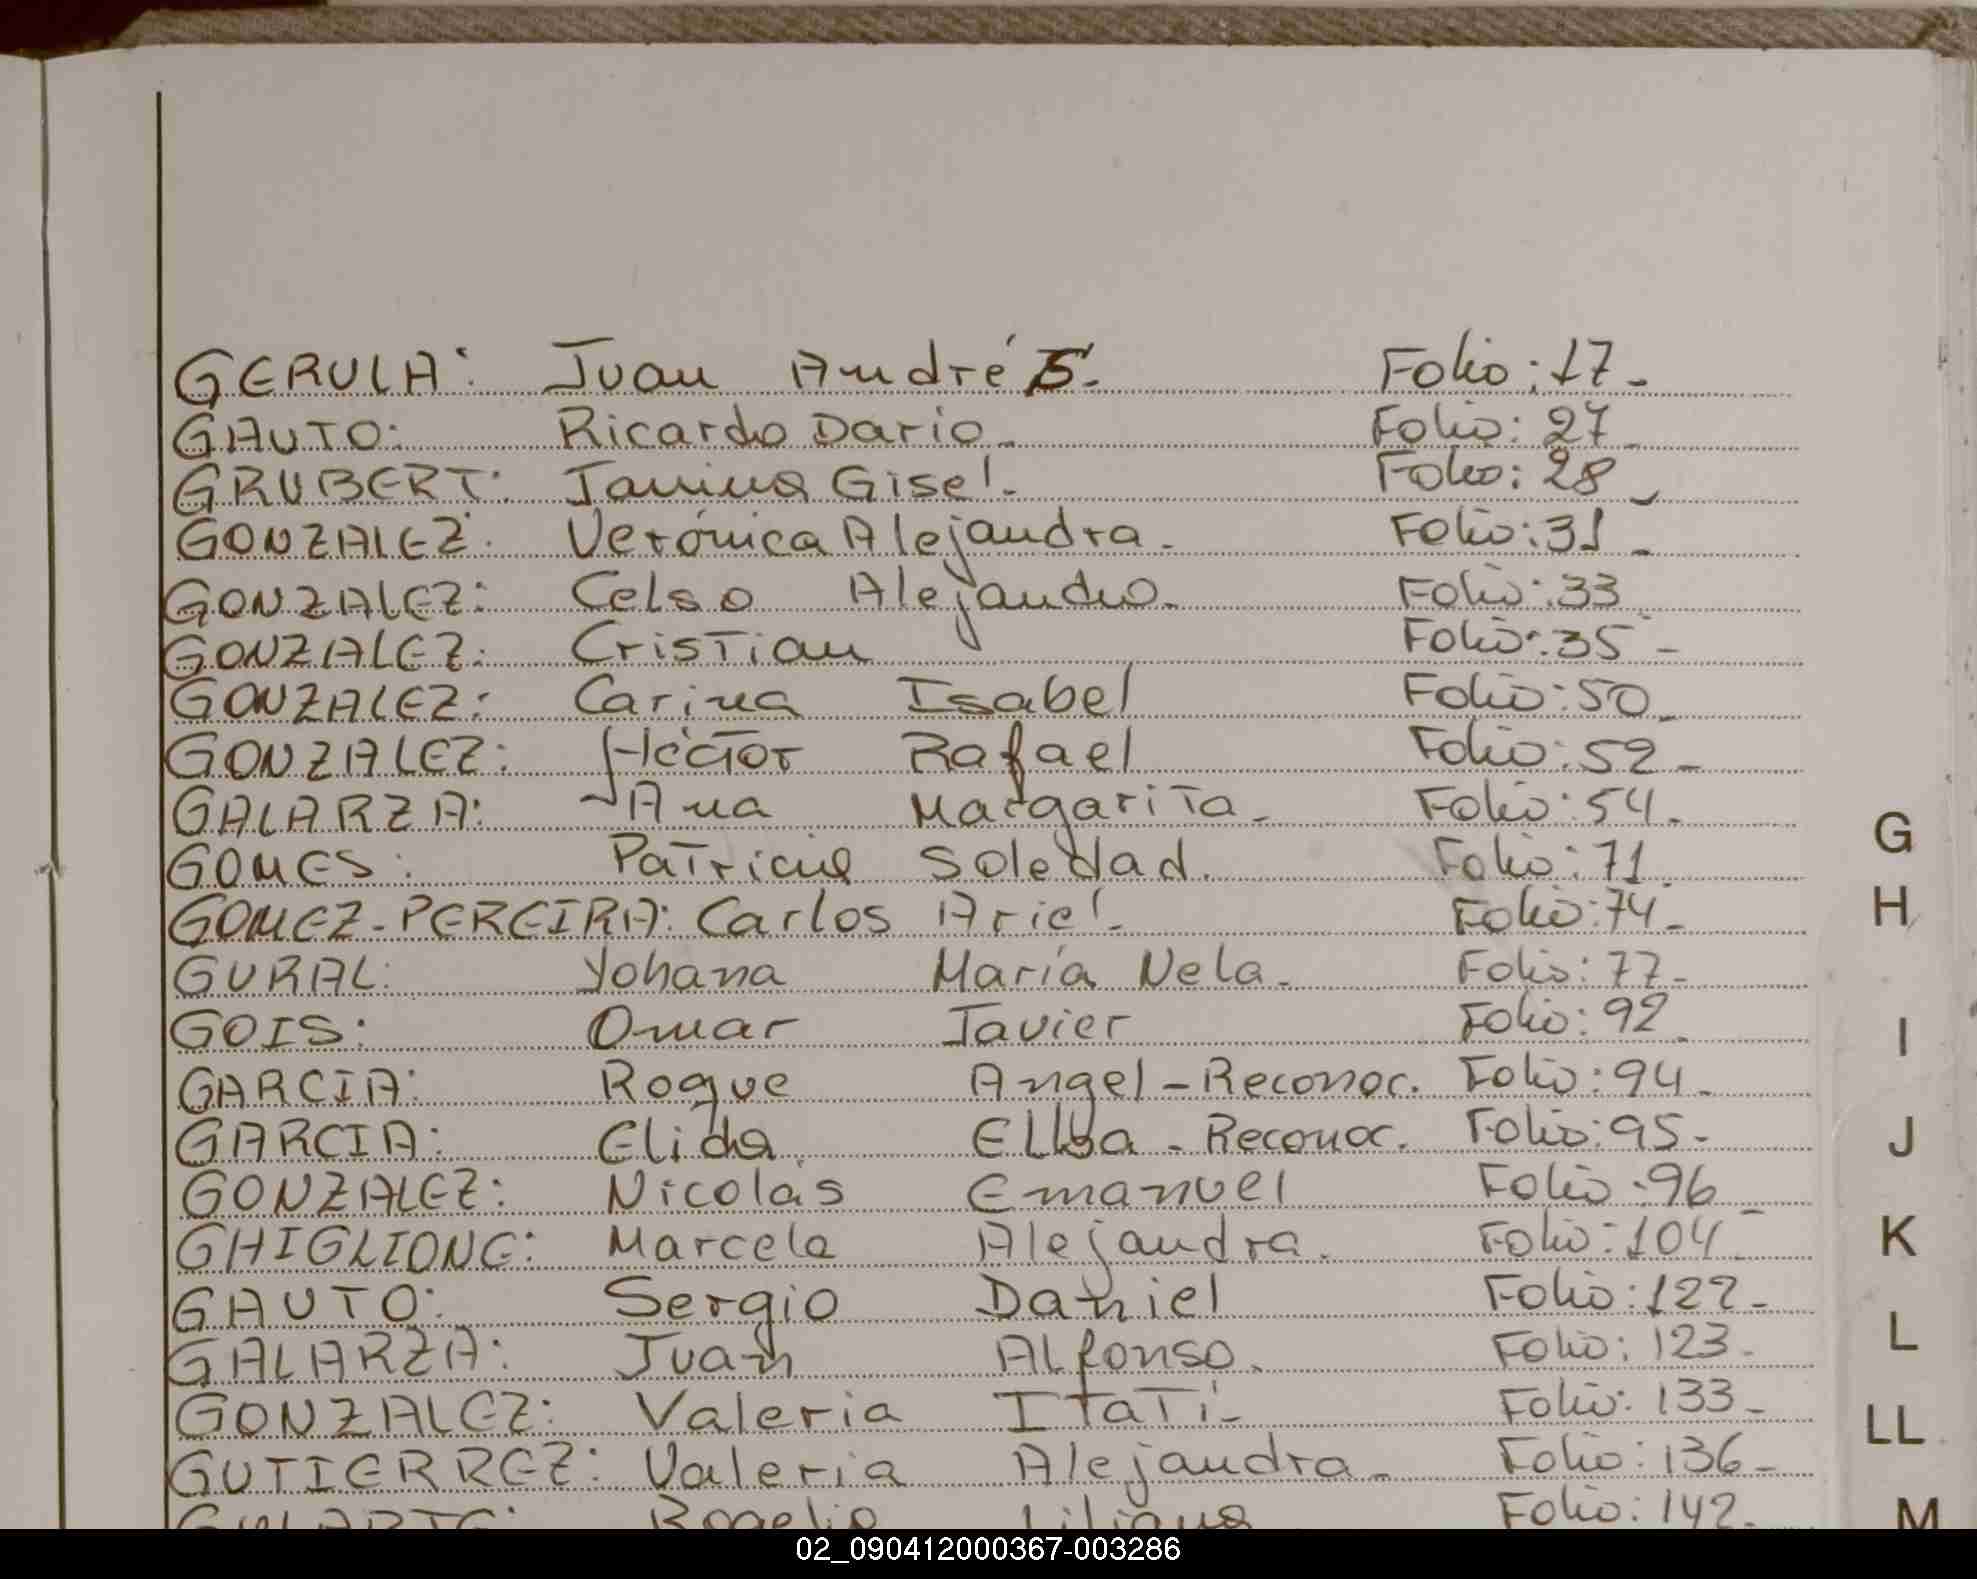 GERULA: Juan Andrés. Folio: 17-
GAUTO: Ricardo Dario- Folio: 27-
GRUBERT: Janina Gisel- Folio: 28-
GONZALEZ: Verónica Alejandra- Folio: 31-
GONZALEZ: Celso Alejandro- Folio: 33
GONZALEZ: Cristian Folio: 35-
GONZALEZ: Carina Isabel Folio: 50-
GONZALEZ: Héctor Rafael Folio: 52-
GALARZA: Ana Margarita- Folio: 54-
GOMES: Patricia Soledad. Folio: 71-
GOMEZ-PEREIRA: Carlos Ariel- Folio: 74-
GURAL: Yohana María Nela- Folio: 77-
GOIS: Omar Javier Folio: 92-
GARCIA: Roque Angel-Reconoc. Folio: 94-
GARCIA: Elida Elba-Reconoc. Folio: 95-
GONZALEZ: Nicolás Emanuel Folio: 96-
GHIGLIONE: Marcela Alejandra. Folio: 104-
GAUTO: Sergio Daniel Folio: 122-
GALARZA: Juan Alfonso. Folio: 123-
GONZALEZ: Valeria Itatí- Folio: 133-
GUTIERREZ: Valeria Alejandra- Folio: 136-
Rogelio Liliana Folio: 142-
G
H
I
J
K
L
LL
M
02_090412000367-003286